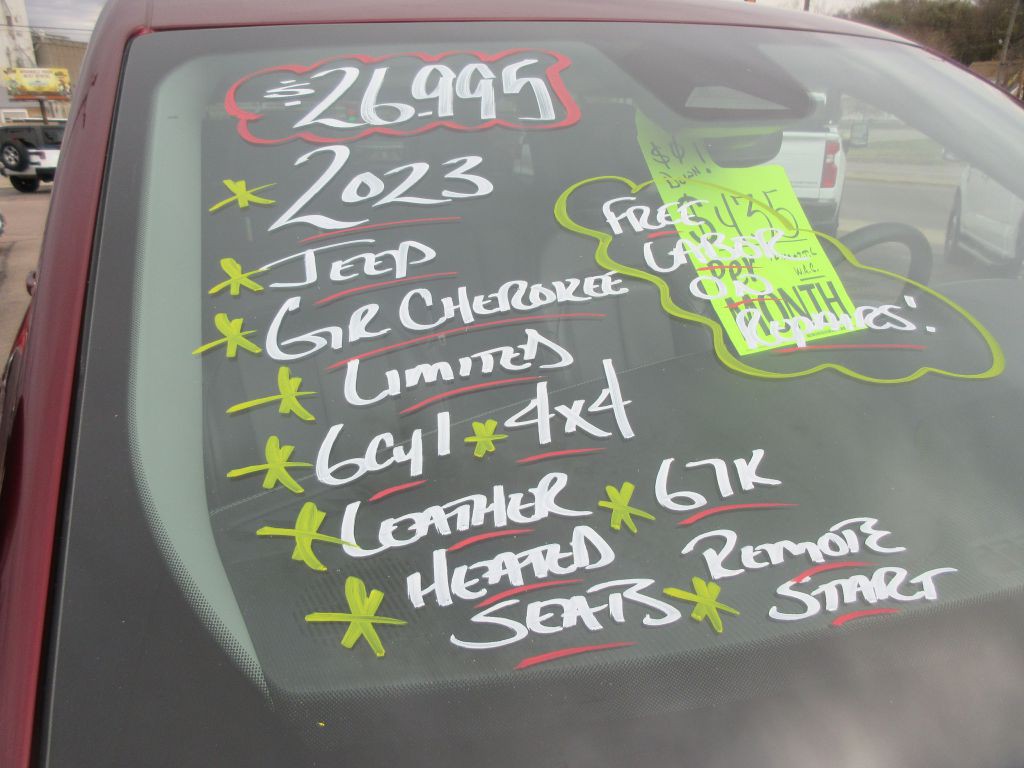 $26,995
2023
JEEP
GR CHEROKEE
LIMITED
6 Cyl * 4x4
LEATHER * 67K
HEATED REMOTE
SEATS * START
$0
DOWN!
$435
W.A.C.
MONTH
FREE
LABOR
ON
REPAIRS!